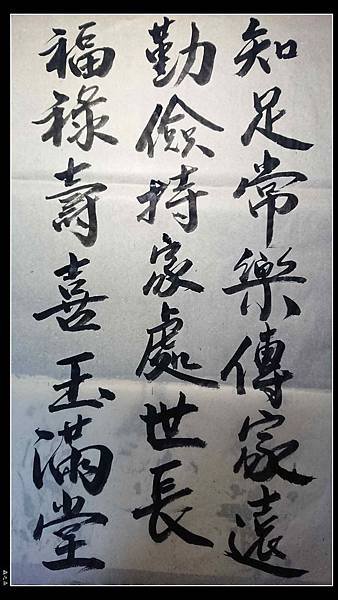 知足常樂傳家遠
勤儉持家處世長
福祿壽喜玉滿堂